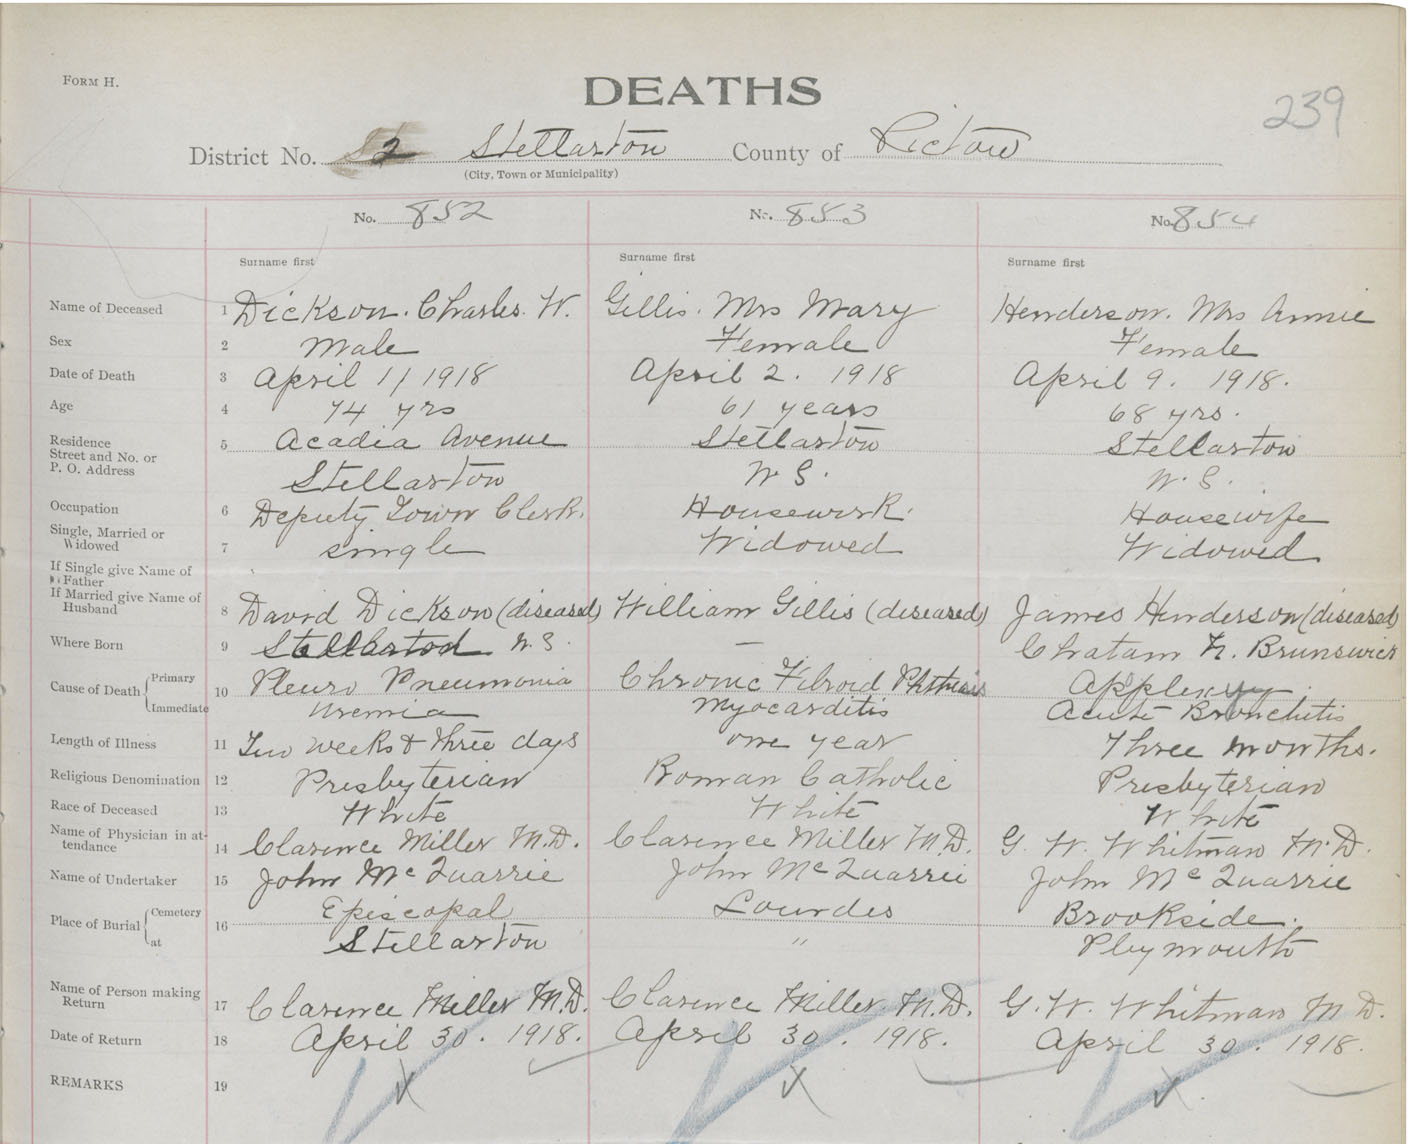 FORM H.
DEATHS
239
District No. 2 Stellarton County of Pictou
(City, Town or Municipality)
No. 852 No. 853 No. 854
Surname first Surname first Surname first
Name of Deceased 1 Dickson. Charles. W. Gillis. Mrs Mary Henderson. Mrs Annie
Sex 2 Male Female Female
Date of Death 3 April 11 1918 April 2. 1918 April 9. 1918.
Age 4 74 yrs 61 years 68 yrs.
Residence
Street and No. or 5 Acadia Avenue Stellarton Stellarton
P. O. Address Stellarton N S. N. S.
Occupation 6 Deputy Town Clerk. Housework. Housewife
Single, Married or
Widowed 7 single Widowed Widowed
If Single give Name of
Father
If Married give Name of
Husband 8 David Dickson (diseased) William Gillis (diseased) James Henderson (diseased)
Where Born 9 Stellarton N.S. — Chatam N. Brunswick
Cause of Death Primary 10 Pleuro Pneumonia Chronic Fibroid Phthisis Applexy
Immediate Uremia Myocarditis Acute Bronchitis
Length of Illness 11 Two weeks & three days one year Three months.
Religious Denomination 12 Presbyterian Roman Catholic Presbyterian
Race of Deceased 13 White White White
Name of Physician in at-
tendance 14 Clarence Miller M.D. Clarence Miller M.D. G. W. Whitman M.D.
Name of Undertaker 15 John Mc Quarrie John Mc Quarrie John Mc Quarrie
Place of Burial Cemetery 16 Episcopal Lourdes Brookside.
at Stellarton " Plymouth
Name of Person making
Return 17 Clarence Miller M.D. Clarence Miller. M.D. G. W. Whitman M D.
Date of Return 18 April 30. 1918. April 30. 1918. April 30. 1918.
REMARKS 19 x x x